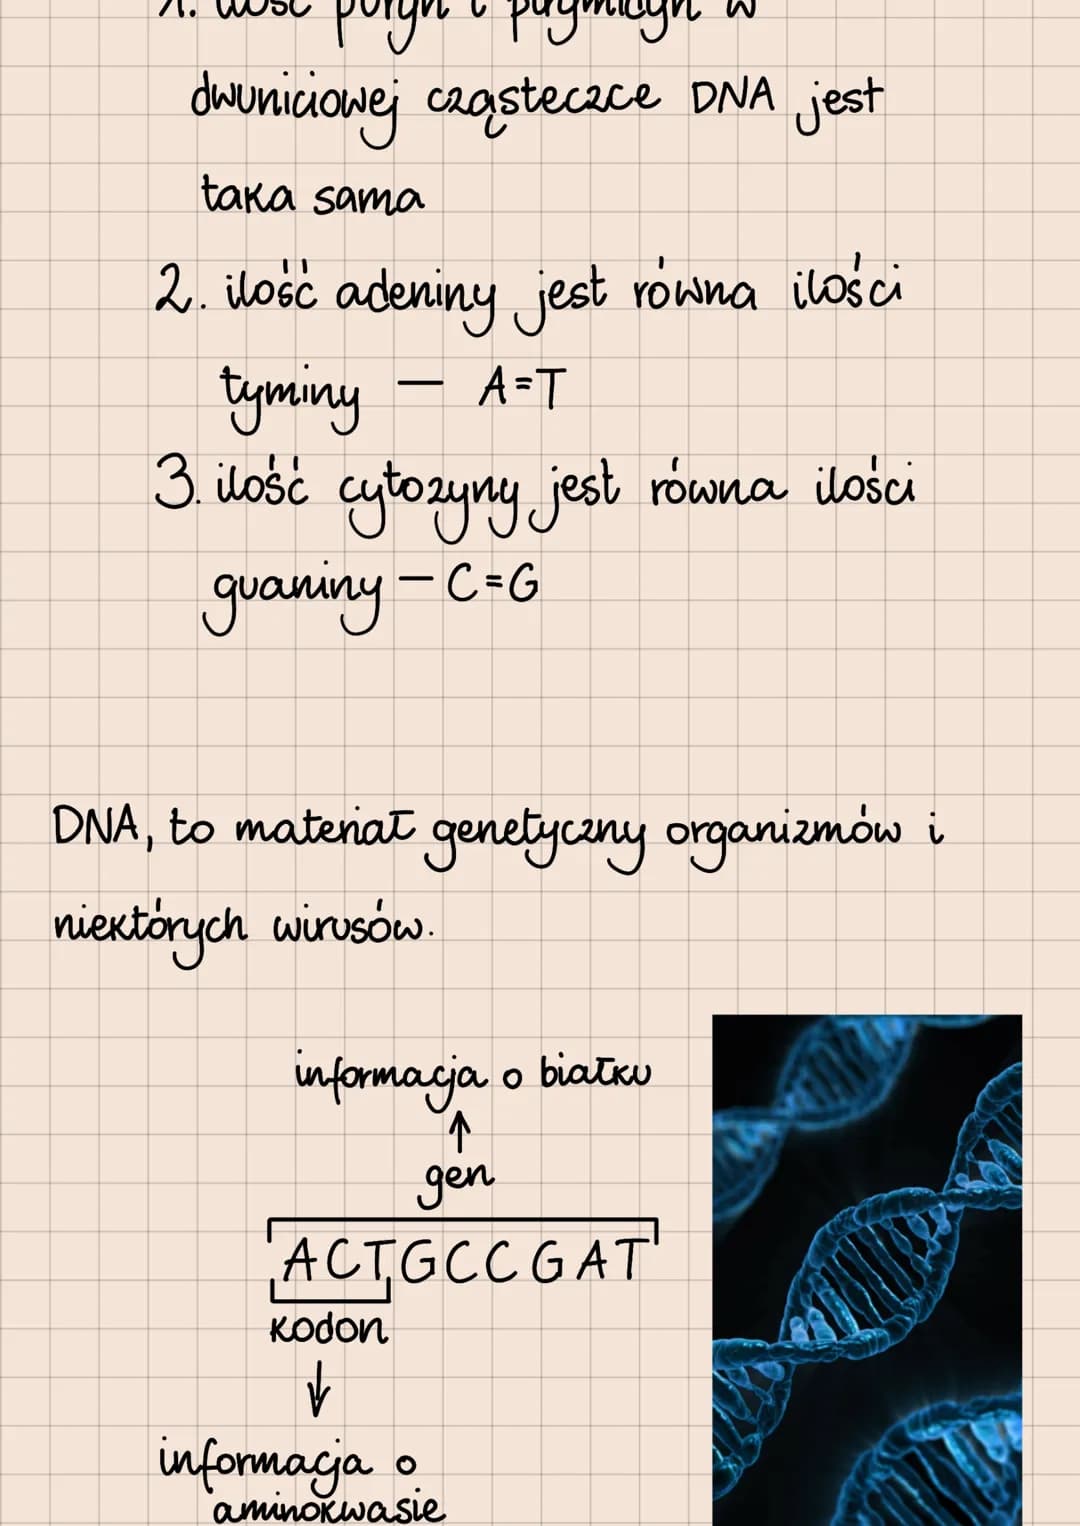 1. ilość puryn i pirymidyn w
dwuniciowej cząsteczce DNA jest
taka sama
2. ilość adeniny jest równa ilości
tyminy — A=T
3. ilość cytozyny jest równa ilości
guaniny — C=G
DNA, to materiał genetyczny organizmów i
niektórych wirusów.
informacja o białku
↑
gen
ACTGCCGAT
kodon
↓
informacja o
aminokwasie